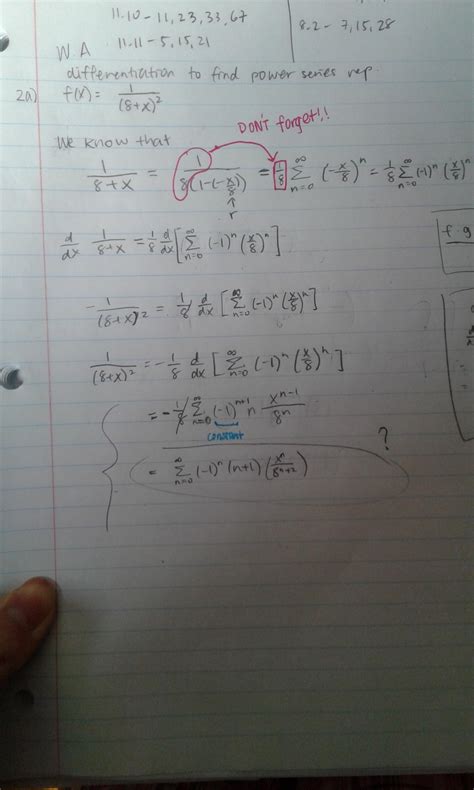 11.10 - 11, 23, 33, 67
11.11 - 5, 15, 21
8.2 - 7, 15, 28
WA
differentiation to find power series rep.
2a) f(x) = 1/(8+x)^2
DON'T forget!!
We know that
1/(8+x) = 1/(8(1-(-x/8))) = 1/8 ∑_{n=0}^{∞} (-x/8)^n = 1/8 ∑_{n=0}^{∞} (-1)^n (x/8)^n
↑
r
d/dx 1/(8+x) = 1/8 d/dx [∑_{n=0}^{∞} (-1)^n (x/8)^n]
-1/(8+x)^2 = 1/8 d/dx [∑_{n=0}^{∞} (-1)^n (x/8)^n]
1/(8+x)^2 = -1/8 d/dx [∑_{n=0}^{∞} (-1)^n (x/8)^n]
= -1/8 ∑_{n=0}^{∞} (-1)^{n+1} n x^{n-1}/8^n
constant
?
= ∑_{n=0}^{∞} (-1)^n (n+1) (x^n/8^{n+2})
f g